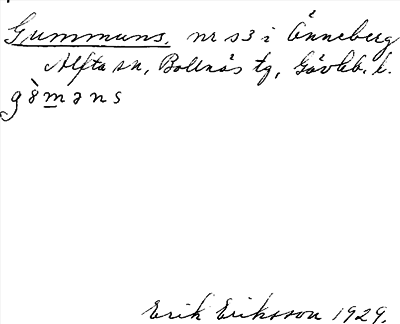 Gummuns, nr s3 i Änneberg
Alfta sn, Bollnäs tg, Gävleb. l.
gòməns
Erik Eriksson 1929.